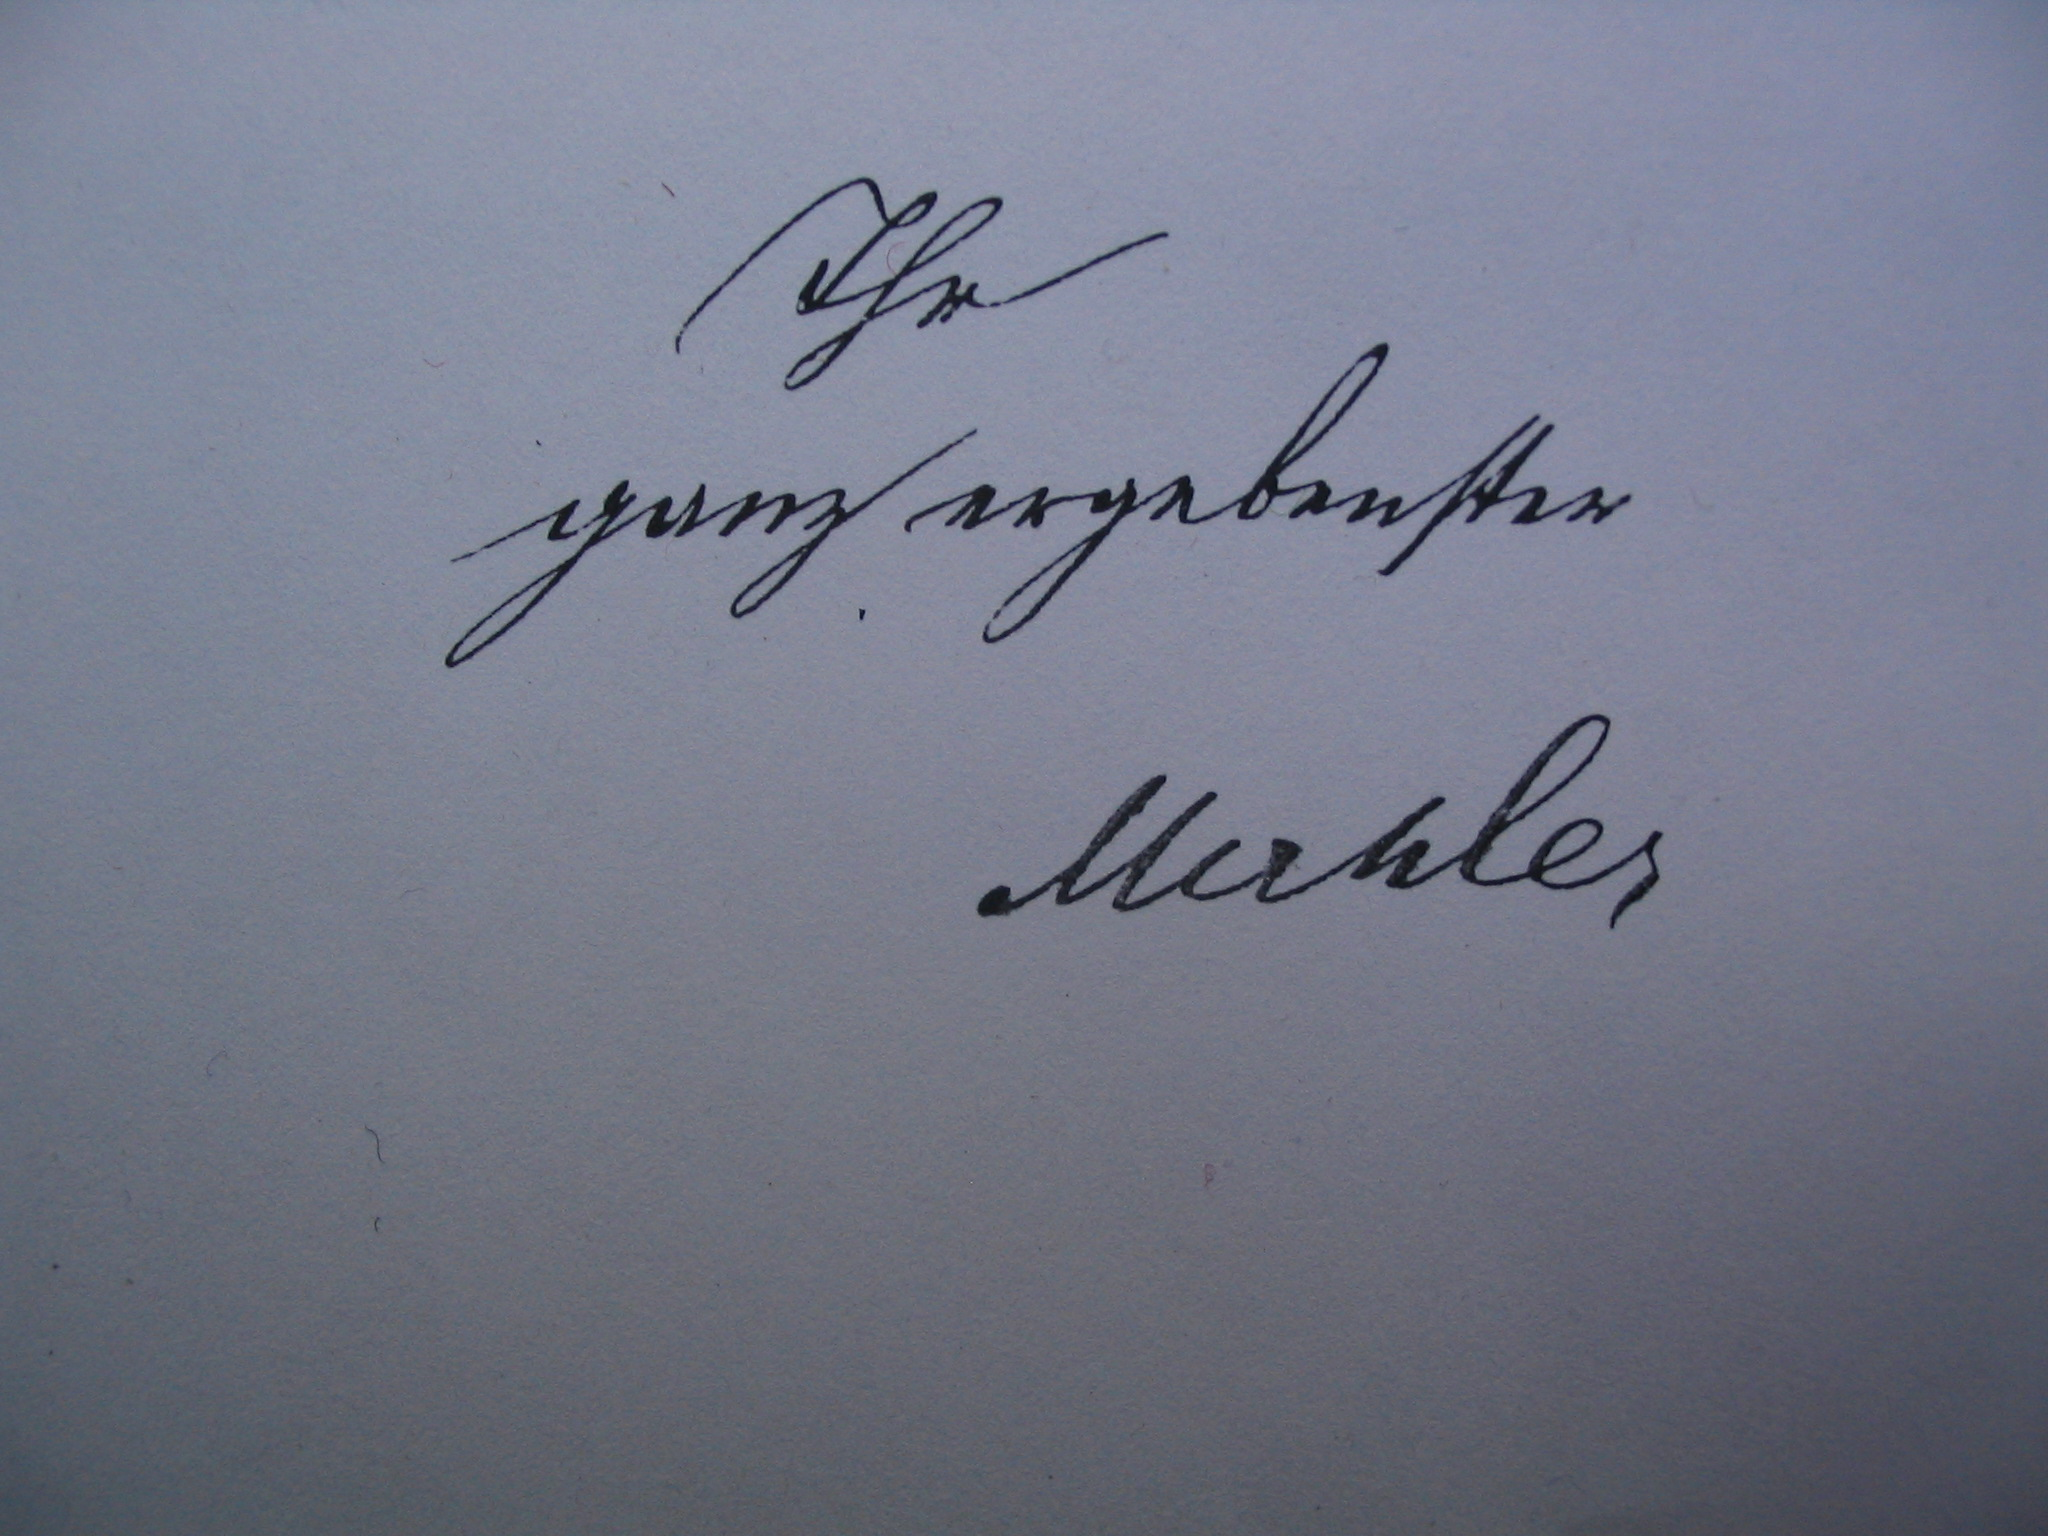 Ihr
ganz ergebenster
Mahler